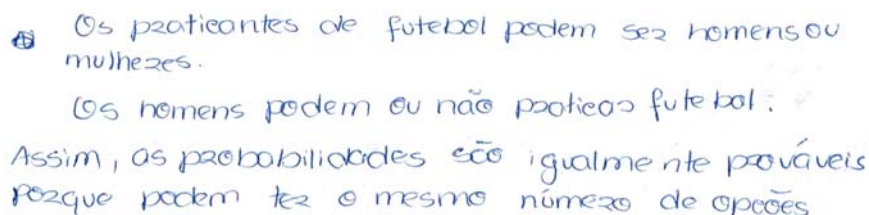 Os praticantes de futebol podem ser homens ou
mulheres.
Os homens podem ou não praticar futebol.
Assim, as probabilidades são igualmente prováveis
porque podem ter o mesmo número de opções